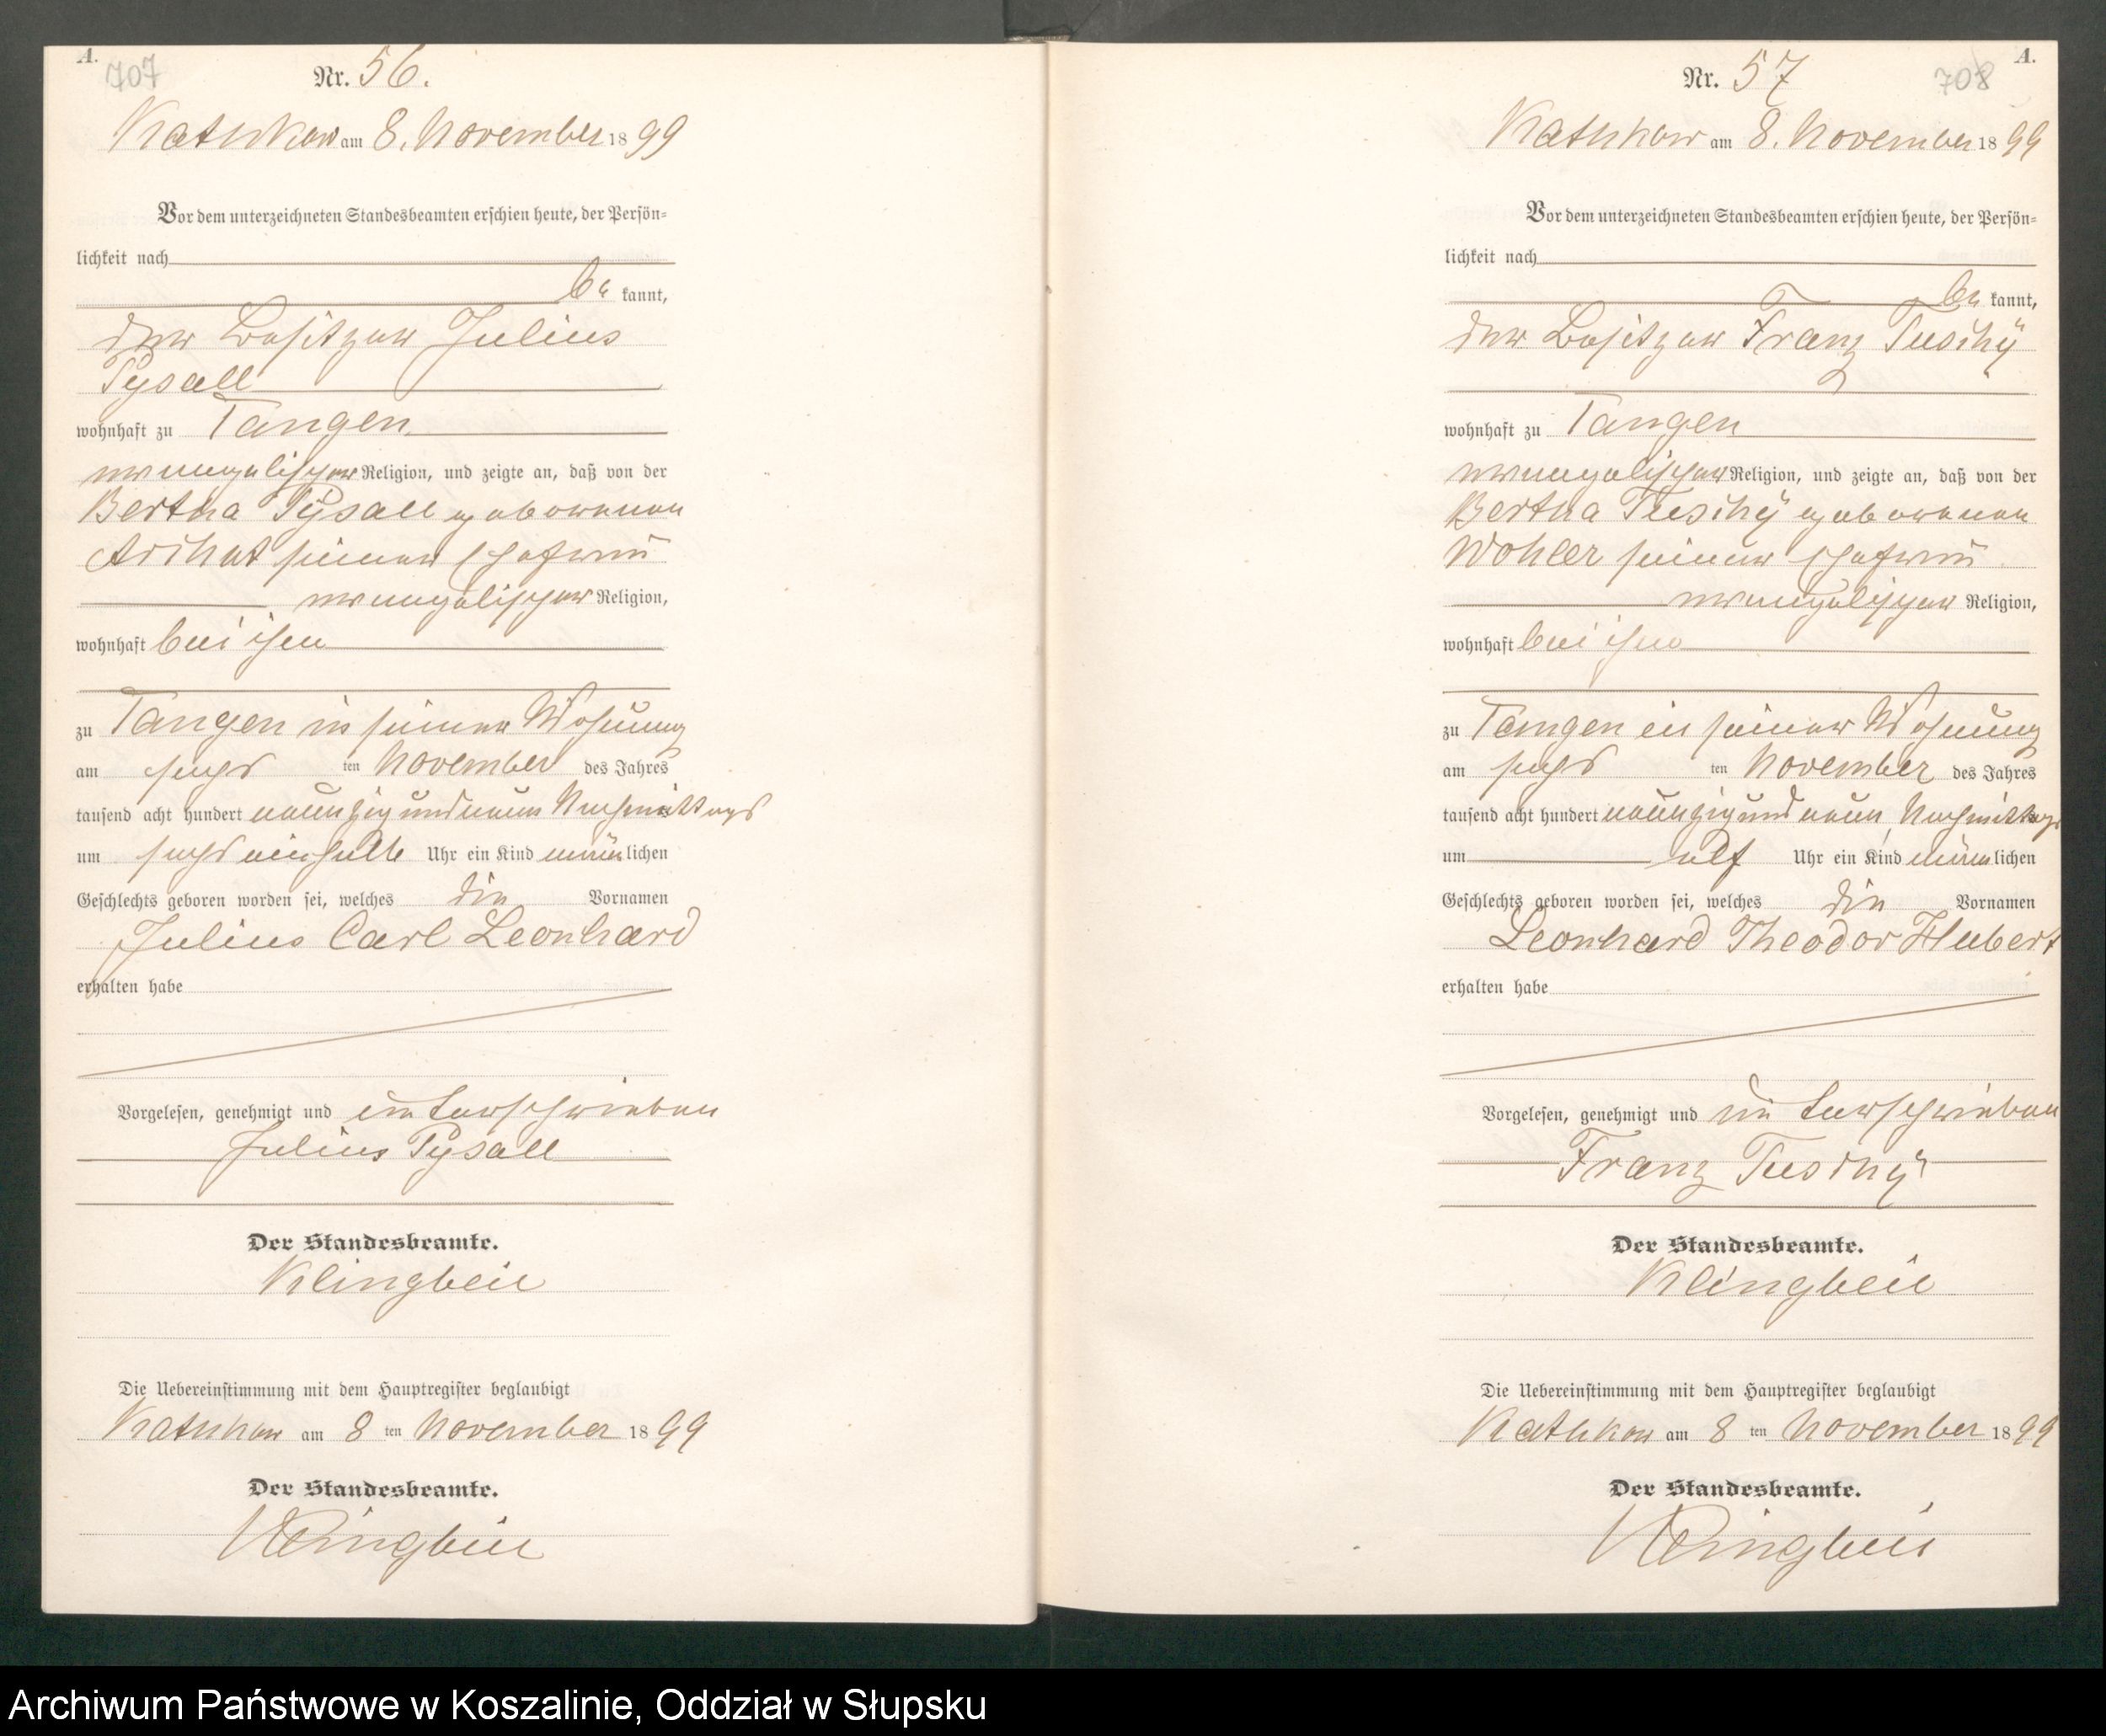 A.
707
Nr. 56.
Kathkow am 8. November 1899
Vor dem unterzeichneten Standesbeamten erschien heute, der Persön=
lichkeit nach
be kannt,
der Besitzer Julius
Pysall
wohnhaft zu Tangen
evangelischer Religion, und zeigte an, daß von der
Bertha Pysall geborenen
seiner Ehefrau
evangelischer Religion,
wohnhaft bei ihm
zu Tangen in seiner Wohnung
am sechs ten November des Jahres
tausend acht hundert neunzig und neun Nachmittags
um sechs einhalb Uhr ein Kind männlichen
Geschlechts geboren worden sei, welches die Vornamen
Julius Carl Leonhard
erhalten habe
Vorgelesen, genehmigt und unterschrieben
Julius Pysall
Der Standesbeamte.
Klingbeil
Die Uebereinstimmung mit dem Hauptregister beglaubigt
Kathkow am 8 ten November 1899
Der Standesbeamte.
Klingbeil
A.
708
Nr. 57
Kathkow am 8. November 1899
Vor dem unterzeichneten Standesbeamten erschien heute, der Persön=
lichkeit nach
be kannt,
der Besitzer Franz Tuschy
wohnhaft zu Tangen
evangelischer Religion, und zeigte an, daß von der
Bertha Tuschy geborenen
Wohler seiner Ehefrau
evangelischer Religion,
wohnhaft bei ihm
zu Tangen in seiner Wohnung
am sechs ten November des Jahres
tausend acht hundert neunzig und neun Nachmittags
um elf Uhr ein Kind männlichen
Geschlechts geboren worden sei, welches die Vornamen
Leonhard Theodor Hubert
erhalten habe
Vorgelesen, genehmigt und unterschrieben
Franz Tuschy
Der Standesbeamte.
Klingbeil
Die Uebereinstimmung mit dem Hauptregister beglaubigt
Kathkow am 8 ten November 1899
Der Standesbeamte.
Klingbeil
Archiwum Państwowe w Koszalinie, Oddział w Słupsku